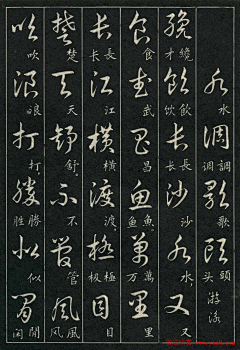 水水調調调歌歌頭頭头游泳又
纔纔才飲飲饮長長长沙沙水水又
食食武武昌昌魚魚鱼萬萬万里里
長長长江江橫横渡渡極極极目目
楚楚天天舒舒不不管管風風风
吹吹浪浪打打勝勝胜似似閒閒闲